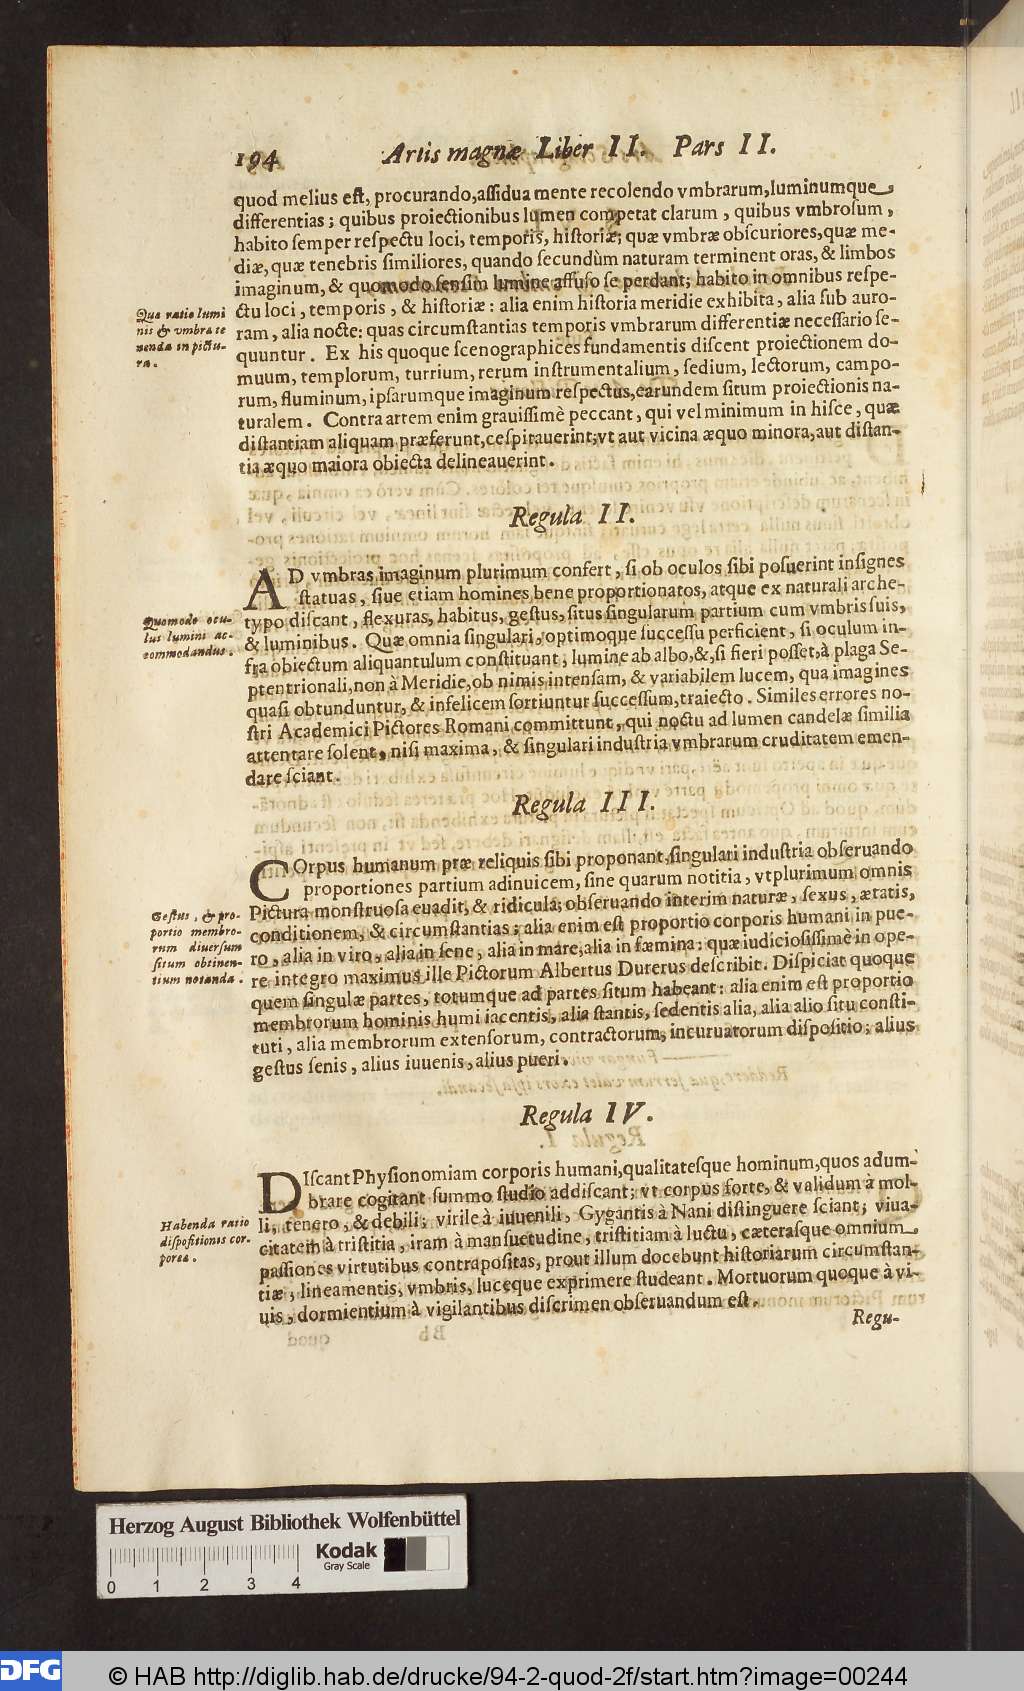 194 Artis magnæ Liber II. Pars II.
quod melius est, procurando, assidua mente recolendo vmbrarum, luminumque
differentias; quibus proiectionibus lumen competat clarum, quibus vmbrosum,
habito semper respectu loci, temporis, historiæ; quæ vmbræ obscuriores, quæ me-
diæ, quæ tenebris similiores, quando secundùm naturam terminent oras, & limbos
imaginum, & quomodo sensim lumine affuso se perdant; habito in omnibus respe-
ctu loci, temporis, & historiæ: alia enim historia meridie exhibita, alia sub auro-
ram, alia nocte: quas circumstantias temporis vmbrarum differentiæ necessario se-
quuntur. Ex his quoque scenographices fundamentis discent proiectionem do-
muum, templorum, turrium, rerum instrumentalium, sedium, lectorum, campo-
rum, fluminum, ipsarumque imaginum respectus, earundem situm proiectionis na-
turalem. Contra artem enim grauissimè peccant, qui vel minimum in hisce, quæ
distantiam aliquam præferunt, cespitauerint; vt aut vicina æquo minora, aut distan-
tia æquo maiora obiecta delineauerint.
Qua ratio lumi
nis & vmbra te
nenda in pictu-
ra.
Regula II.
AD vmbras imaginum plurimum confert, si ob oculos sibi posuerint insignes
statuas, siue etiam homines bene proportionatos, atque ex naturali arche-
typo discant, flexuras, habitus, gestus, situs singularum partium cum vmbris suis,
& luminibus. Quæ omnia singulari, optimoque successu perficient, si oculum in-
fra obiectum aliquantulum constituant, lumine ab albo, &, si fieri posset, à plaga Se-
ptentrionali, non à Meridie, ob nimis intensam, & variabilem lucem, qua imagines
quasi obtunduntur, & infelicem sortiuntur successum, traiecto. Similes errores no-
stri Academici Pictores Romani committunt, qui noctu ad lumen candelæ similia
attentare solent, nisi maxima, & singulari industria vmbrarum cruditatem emen-
dare sciant.
Quomodo ocu-
lus lumini ac-
commodandus.
Regula III.
COrpus humanum præ reliquis sibi proponant, singulari industria obseruando
proportiones partium adinuicem, sine quarum notitia, vtplurimum omnis
Pictura monstruosa euadit, & ridicula; obseruando interim naturæ, sexus, ætatis,
conditionem, & circumstantias; alia enim est proportio corporis humani in pue-
ro, alia in viro, alia in sene, alia in mare, alia in fæmina: quæ iudiciosissimè in ope-
re integro maximus ille Pictorum Albertus Durerus describit. Dispiciat quoque
quem singulæ partes, totumque ad partes situm habeant: alia enim est proportio
membrorum hominis humi iacentis, alia stantis, sedentis alia, alia alio situ consti-
tuti, alia membrorum extensorum, contractorum, incuruatorum dispositio; alius
gestus senis, alius iuuenis, alius pueri.
Gestus, & pro-
portio membro-
rum diuersum
situm obtinen-
tium notanda.
Regula IV.
DIscant Physionomiam corporis humani, qualitatesque hominum, quos adum-
brare cogitant summo studio addiscant; vt corpus forte, & validum à mol-
li, tenero, & debili; virile à iuuenili, Gygantis à Nani distinguere sciant; viua-
citatem à tristitia, iram à mansuetudine, tristitiam à luctu, cæterasque omnium
passiones virtutibus contrapositas, prout illum docebunt historiarum circumstan-
tiæ, lineamentis, vmbris, luceque exprimere studeant. Mortuorum quoque à vi-
uis, dormientium à vigilantibus discrimen obseruandum est.
Habenda ratio
dispositionis cor-
porea.
Regu-
Herzog August Bibliothek Wolfenbüttel
Kodak
Gray Scale
0 1 2 3 4
DFG
© HAB http://diglib.hab.de/drucke/94-2-quod-2f/start.htm?image=00244